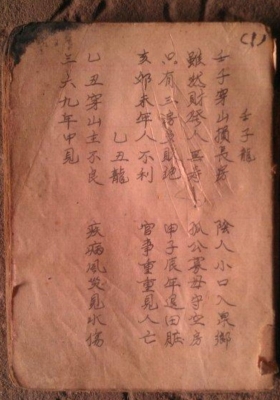 (1)
壬子龍
壬子穿山損長房 陰人小口入泉鄉
雖然財發人無 孤公寡母守空房
只有三 多財 甲子辰年進田
亥卯未年人不利 官事重重見人亡
乙丑龍
乙丑穿山主不良 疾病風災見水傷
三六九年中見